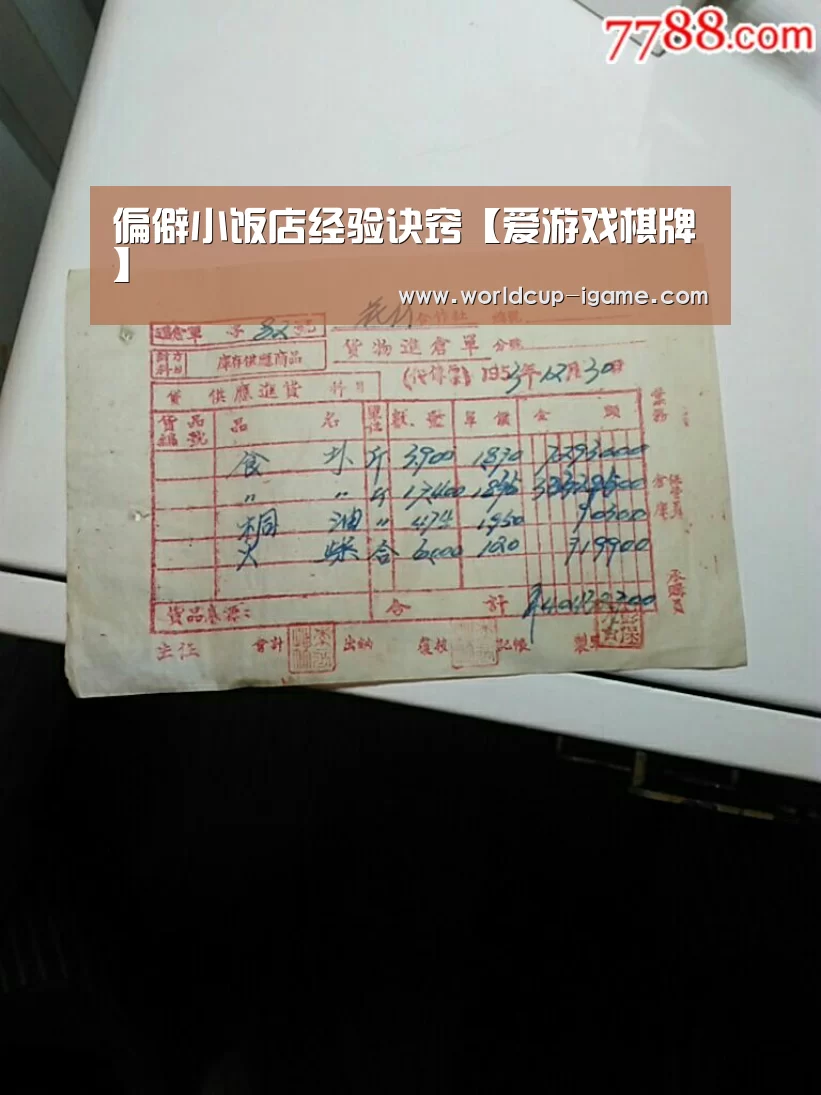 7788.com
偏僻小饭店经验诀窍【爱游戏棋牌
】
www.worldcup-igame.com
進倉單 字 82 號 合作社 總號
貨物進倉單 分號
對方科目 庫存供應商品
(代傳票) 1953年12月30日
貸 供應進貨 科目
業務
貨品編號 品名 單位 數量 單價 金額
食 斤 3900 1870 7293000
〃 〃 斤 17400 1895
倉庫 保管員
桐油 〃 474 1950 90300
火柴 合 6000 120 719900
承購員
貨品來源: 合計
主任 會計 出納 復核 記帳 製單